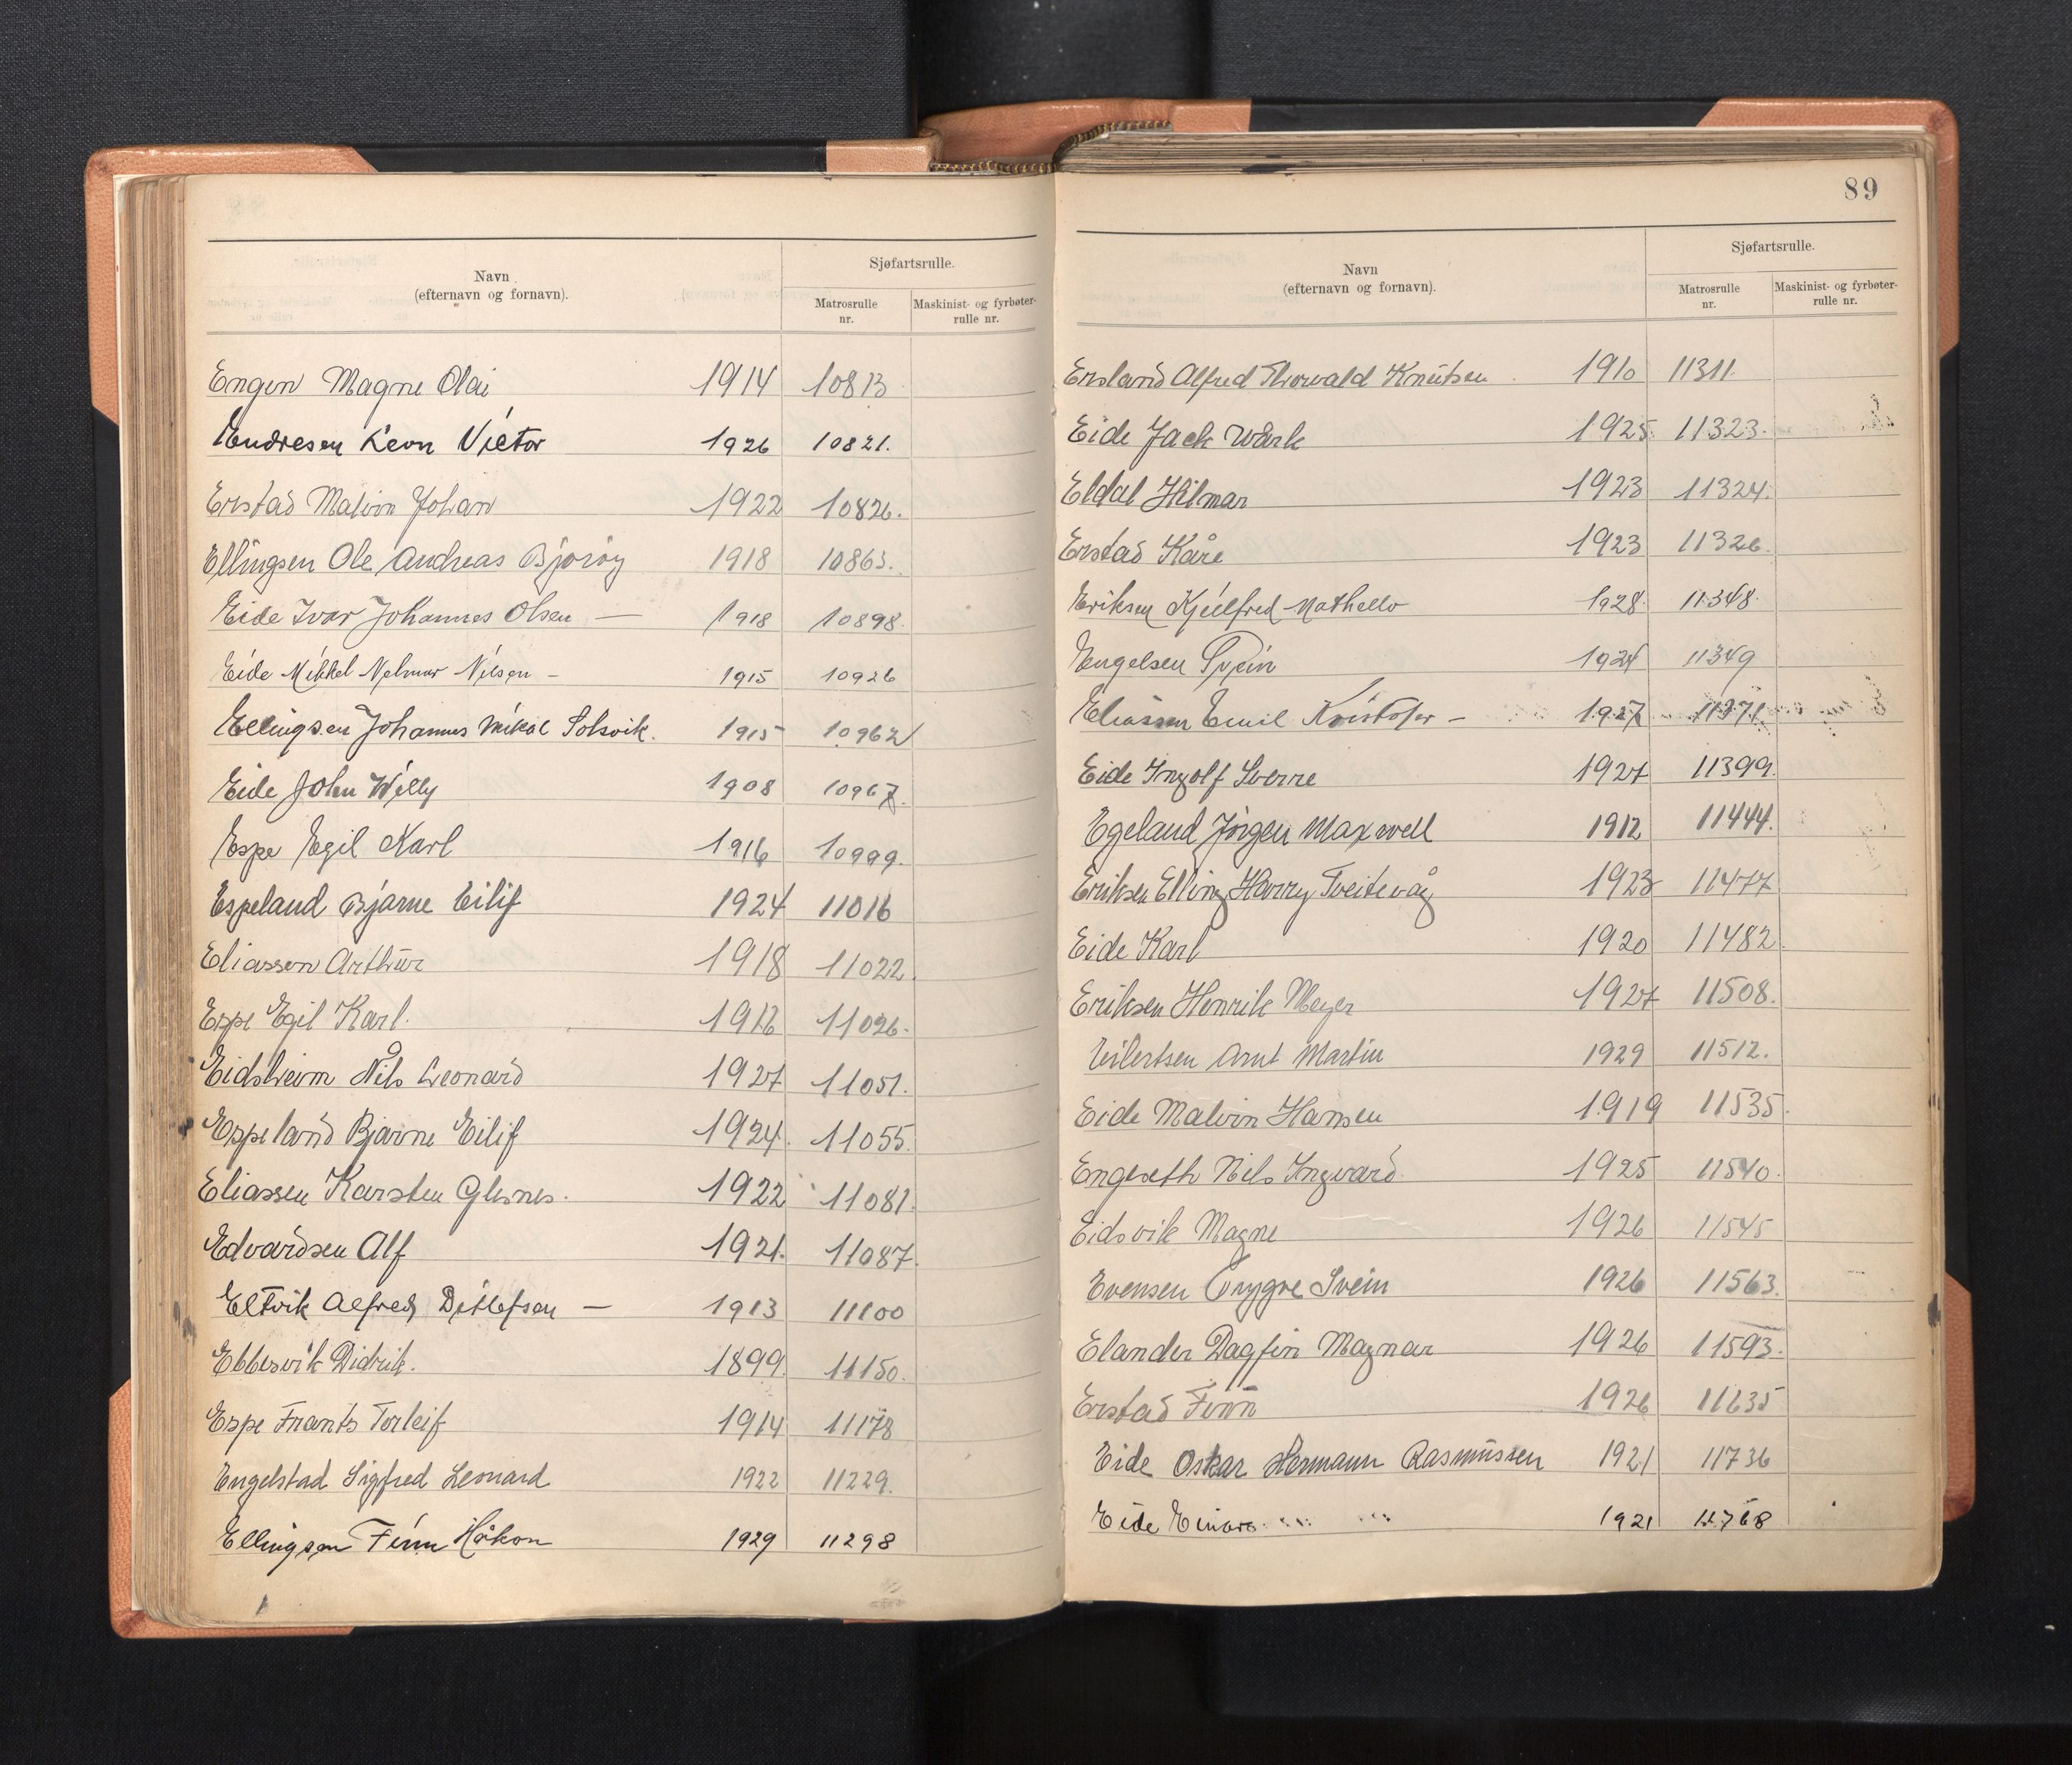 Sjøfartsrulle.
Navn
(efternavn og fornavn).
Matrosrulle
nr.
Maskinist- og fyrbøter-
rulle nr.
Engen Magne Olai 1914 10813
Endresen Leon Victor 1926 10821.
Erstad Malvin Johan 1922 10826.
Ellingsen Ole Andreas Bjørøy 1918 10863.
Eide Ivar Johannes Olsen — 1918 10898.
Eide Mikkel Nilsen - 1915 10926
Ellingsen Johannes Mikal Solsvik. 1915 10962
Eide John Willy 1908 10967.
Espe Egil Karl 1916 10999.
Espeland Bjarne Eilif 1924 11016
Eliassen Arthur 1918 11022.
Espe Egil Karl. 1916 11026.
Eidsheim Nils Leonard 1927 11051.
Espeland Bjarne Eilif 1924. 11055.
Eliassen Karsten Glesnes. 1922 11081.
Edvardsen Alf 1921. 11087.
Eltvik Alfred Ditlefsen — 1913 11100
Ebbesvik Didrik. 1899. 11150.
Espe Frants Torleif 1914 11178
Engelstad Sigfred Leonard 1922 11229.
Ellingsen Finn Håkon 1929 11298
89
Sjøfartsrulle.
Navn
(efternavn og fornavn).
Matrosrulle
nr.
Maskinist- og fyrbøter-
rulle nr.
Ersland Alfred Thorvald Knutsen 1910 11311.
Eide Jack Wårk 1925. 11323.
Eldal Hilmar 1923 11324.
Erstad Kåre 1923 11326.
Eriksen Kjellfred Mathello 1928. 11348.
Engelsen Svein 1924 11349
Eliassen Emil Kristofer - 1927 11371.
Eide Ingolf Sverre 1927 11399.
Egeland Jörgen Maxwell 1912 11444.
Eriksen Elling Harry Tveitevåg 1923 11477
Eide Karl 1920 11482.
Eriksen Henrik Meyer 1927 11508.
Eilertsen Arnt Martin 1929 11512.
Eide Malvin Hansen 1919 11535.
Engeseth Nils Ingvard. 1925 11540.
Eidsvik Magne 1926 11545
Evensen Trygve Svein 1926 11563.
Elander Dagfin Magnar 1926 11593.
Erstad Finn 1926 11635
Eide Oskar Hermann Rasmussen 1921 11736
Eide Einar 1921 11768